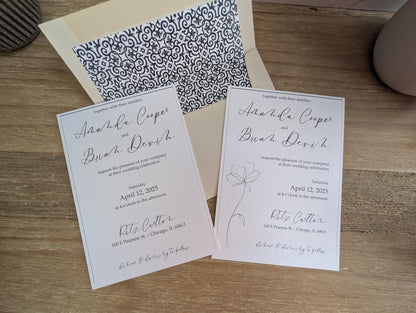 together with their families
Amanda Cooper
and
Brian Devin
request the pleasure of your company
at their wedding celebration
Saturday
April 12, 2025
at 6 o'clock in the afternoon
Ritz Carlton
160 E Pearson St. | Chicago, IL 60611
dinner & dancing to follow
together with their families
Amanda Cooper
and
Brian Devin
request the pleasure of your company
at their wedding celebration
Saturday
April 12, 2025
at 6 o'clock in the afternoon
Ritz Carlton
160 E Pearson St. | Chicago, IL 60611
dinner & dancing to follow